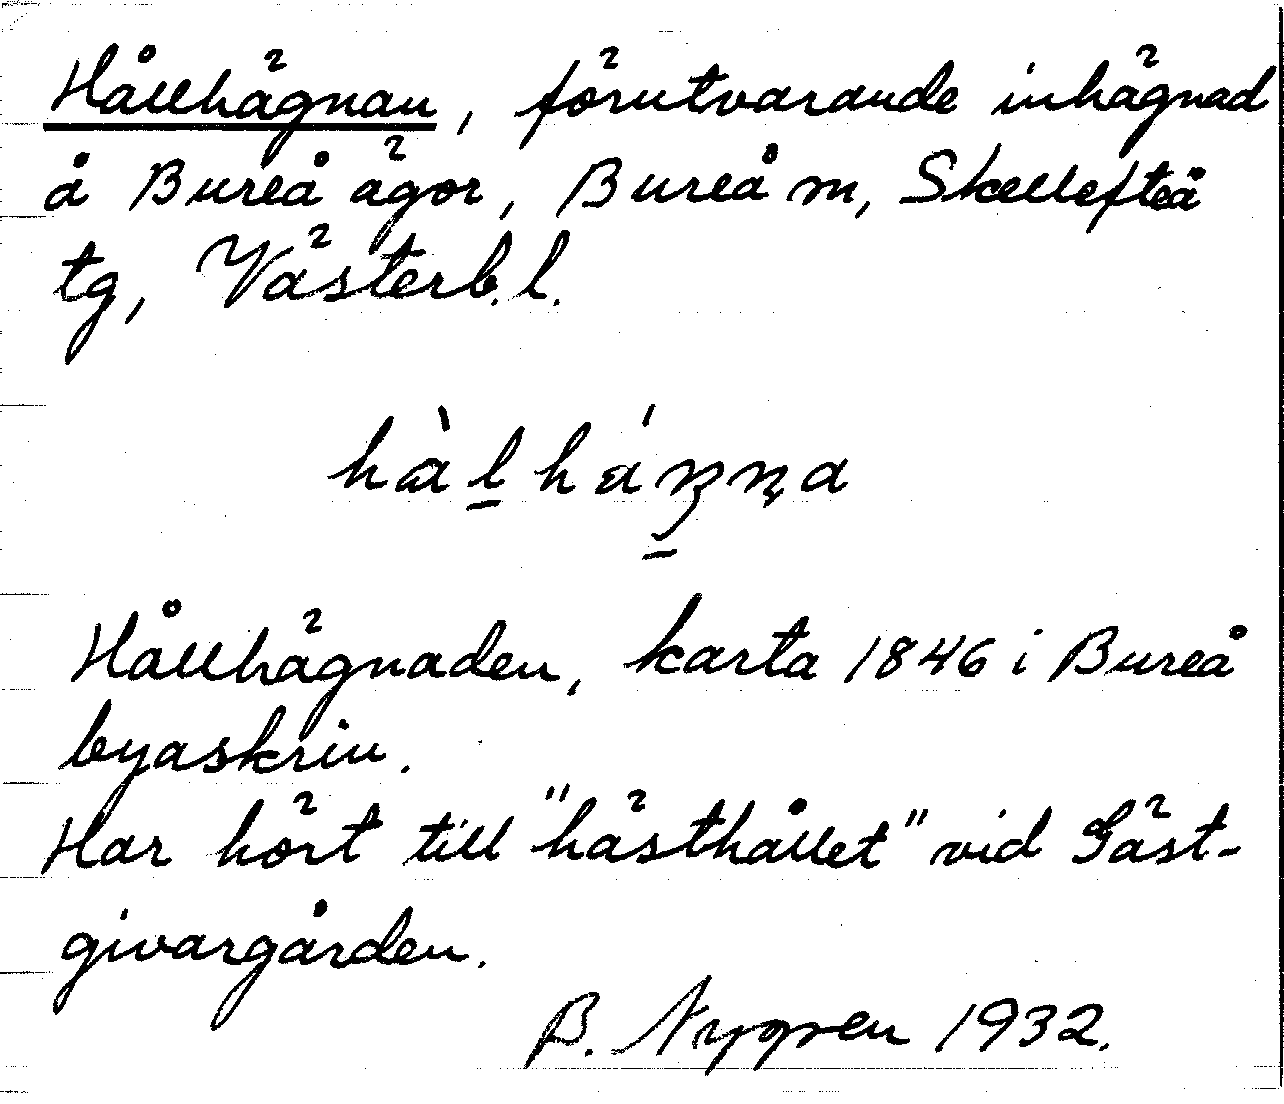 Hållhägnan, förutvarande inhägnad
å Bureå ägor, Bureå m, Skellefteå
tg, Västerb.l.
Hållhägnaden, karta 1846 i Bureå
byaskrin.
Har hört till "hästhållet" vid Gäst-
givargården.
B. Nygren 1932.